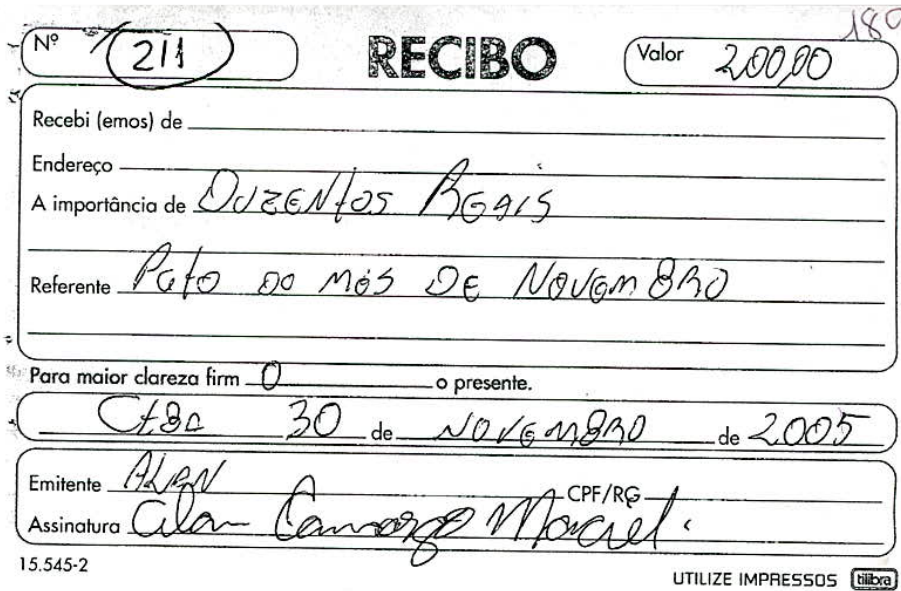 180
Nº 211 RECIBO Valor 200,00
Recebi (emos) de
Endereço
A importância de DUZENtos REAIS
Referente Pgto DO MÊS DE NOVEMBRO
Para maior clareza firm O o presente.
CtBa 30 de NOVEMBRO de 2005
Emitente ALAN CPF/RG
Assinatura Alan Camargo Maciel
15.545-2
UTILIZE IMPRESSOS tilibra